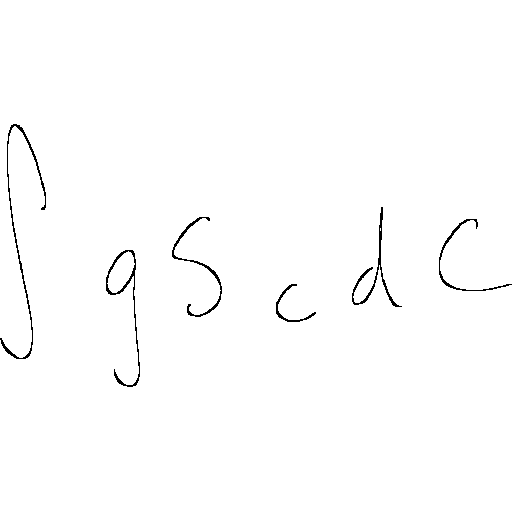 ∫ g S c d C